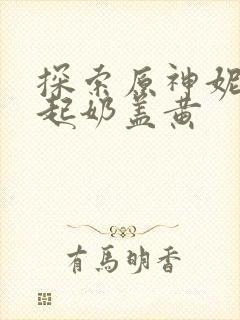 探索原神妮
起奶盖黄
有馬明香